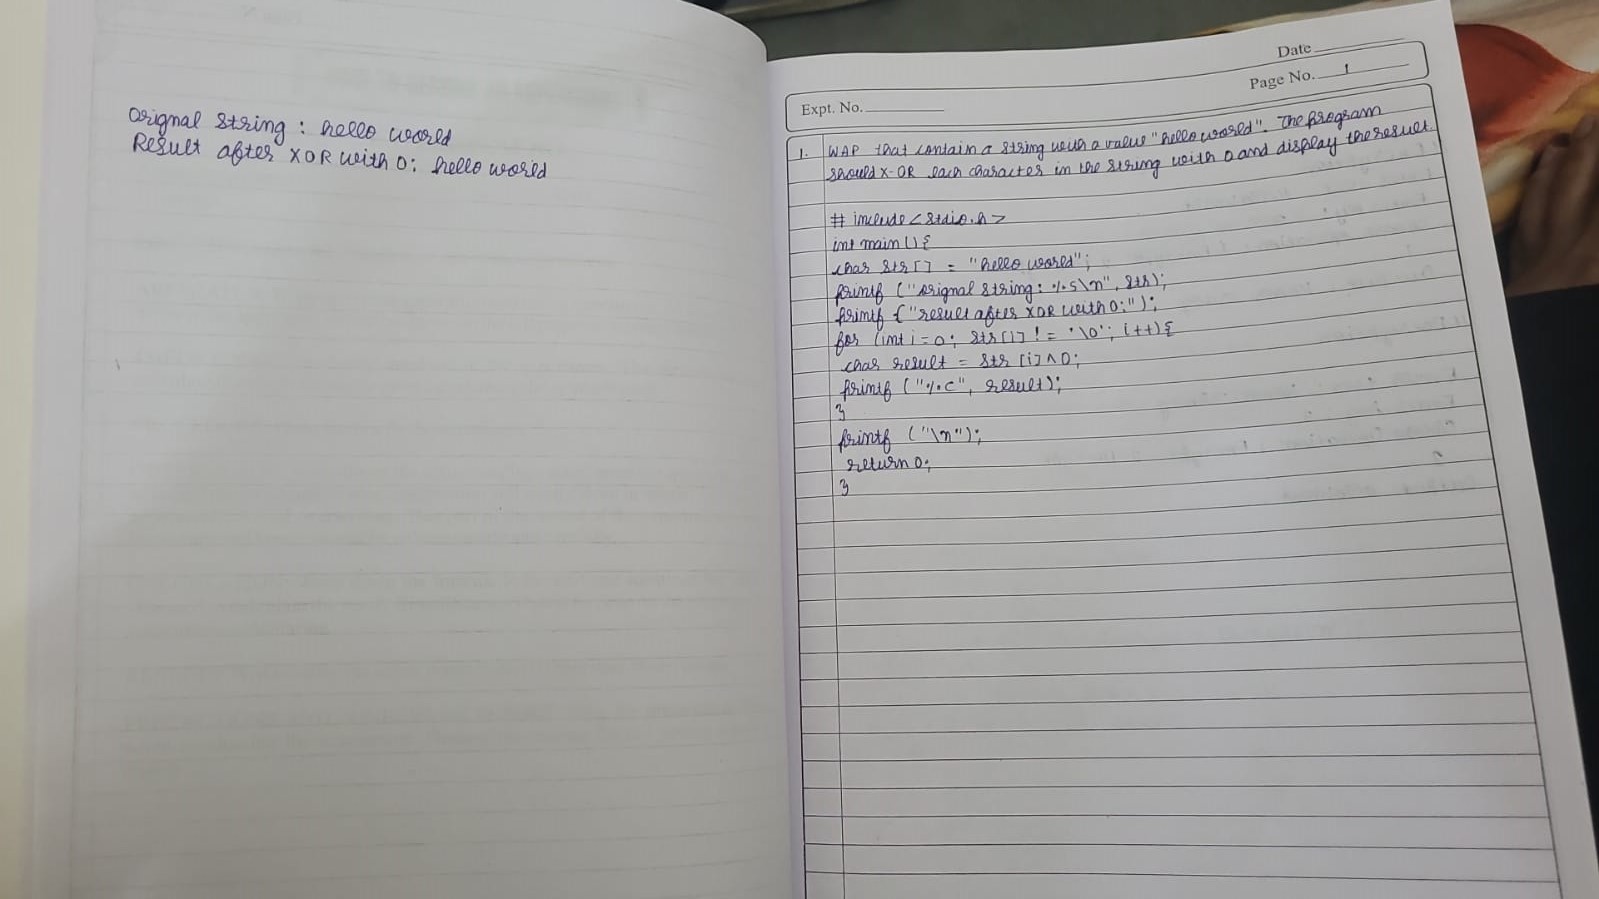 Orignal String : hello world
Result after XOR with 0: hello world
Date
Page No. 1
Expt. No.
1. WAP that contain a string with a value "hello world". The program
should X-OR each character in the string with 0 and display the result.
# include < stdio.h >
int main () {
char str [] = "hello world";
printf ("orignal string: %s\n", str);
printf ("result after XOR with 0:");
for (int i = 0; str [i] != '\0'; i++) {
char result = str [i] ^ 0;
printf ("%c", result);
}
printf ("\n");
return 0;
}